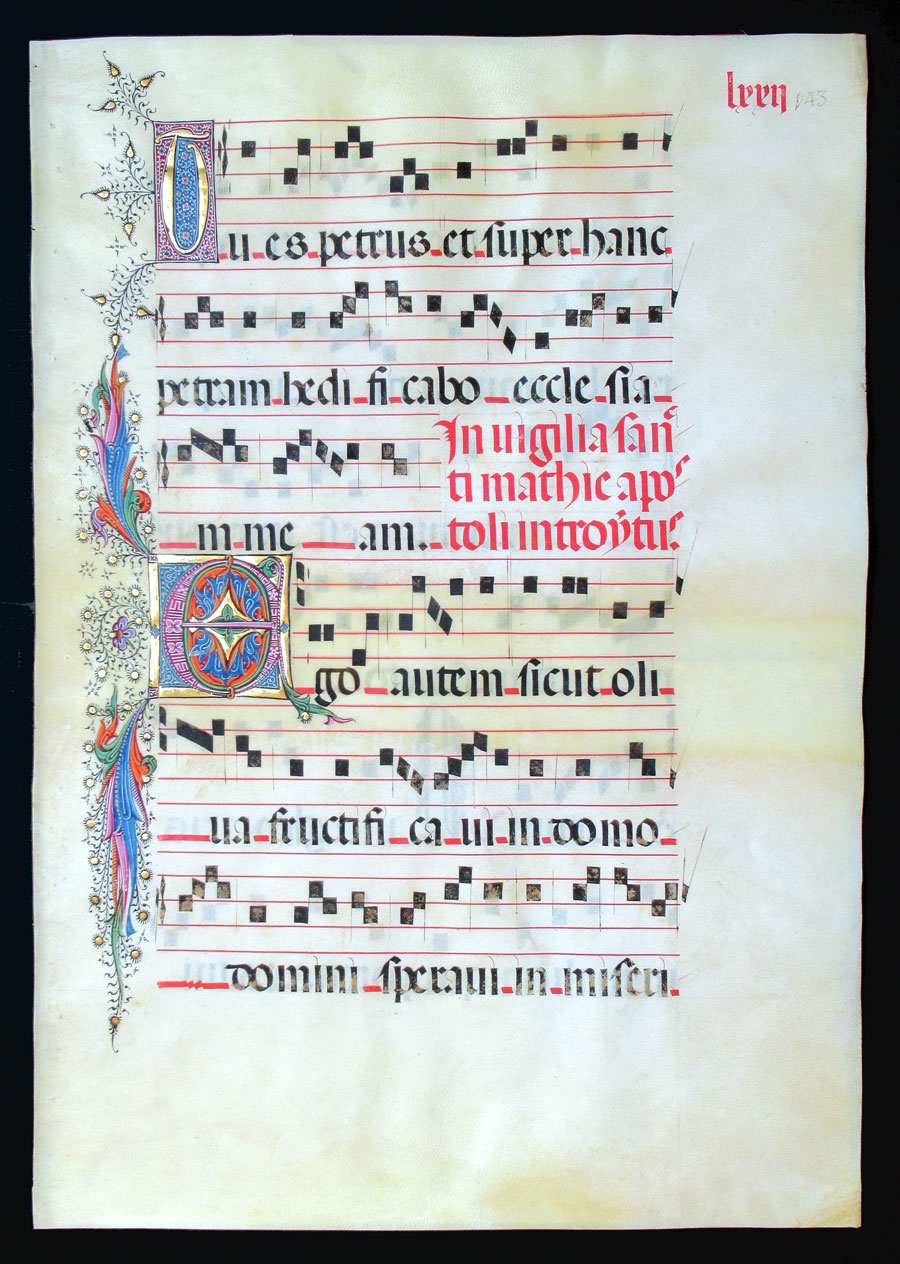 lxxii 143
Tu es petrus et super hanc
petram hedi fi cabo eccle sia
In uigilia san
m me am. ti mathie apos
toli introytus
Ego autem sicut oli
ua fructifi ca ui in domo
domini speraui in miseri